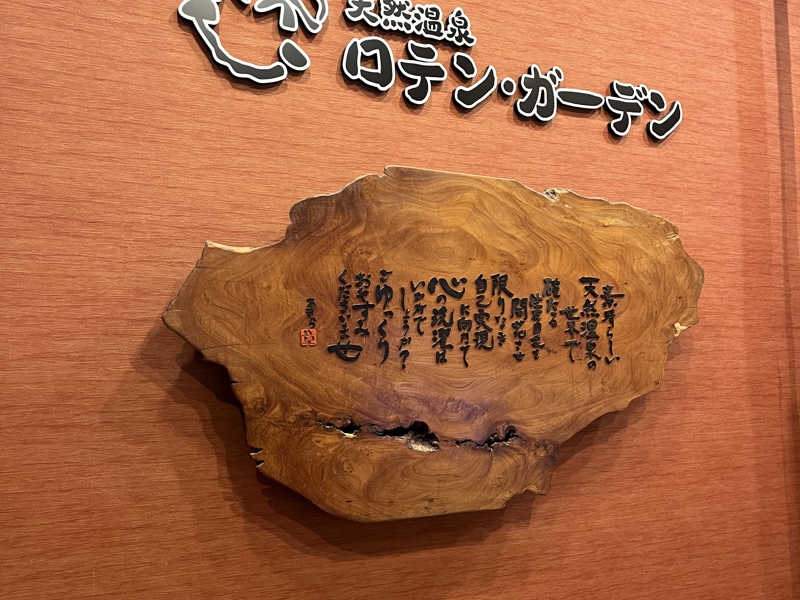 天然温泉
ロテン・ガーデン
素晴らしい
天然温泉の
世界で
雄大なる
自己を
開花させ
限りなき
自己実現
に向けて
心の洗濯は
いかがで
しょうか?
ごゆっくり
おやすみ
くださいませ